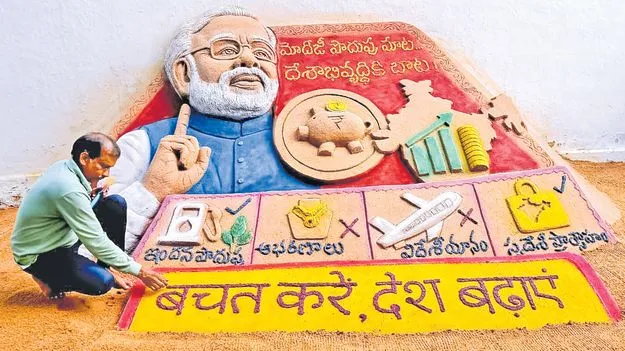 మోదీజీ పొదుపు మాట..
దేశాభివృద్ధికి బాట
ఇంధన పొదుపు
ఆభరణాలు
విదేశీయానం
స్వదేశీ ప్రోత్సాహం
बचत करें, देश बढ़ाएं